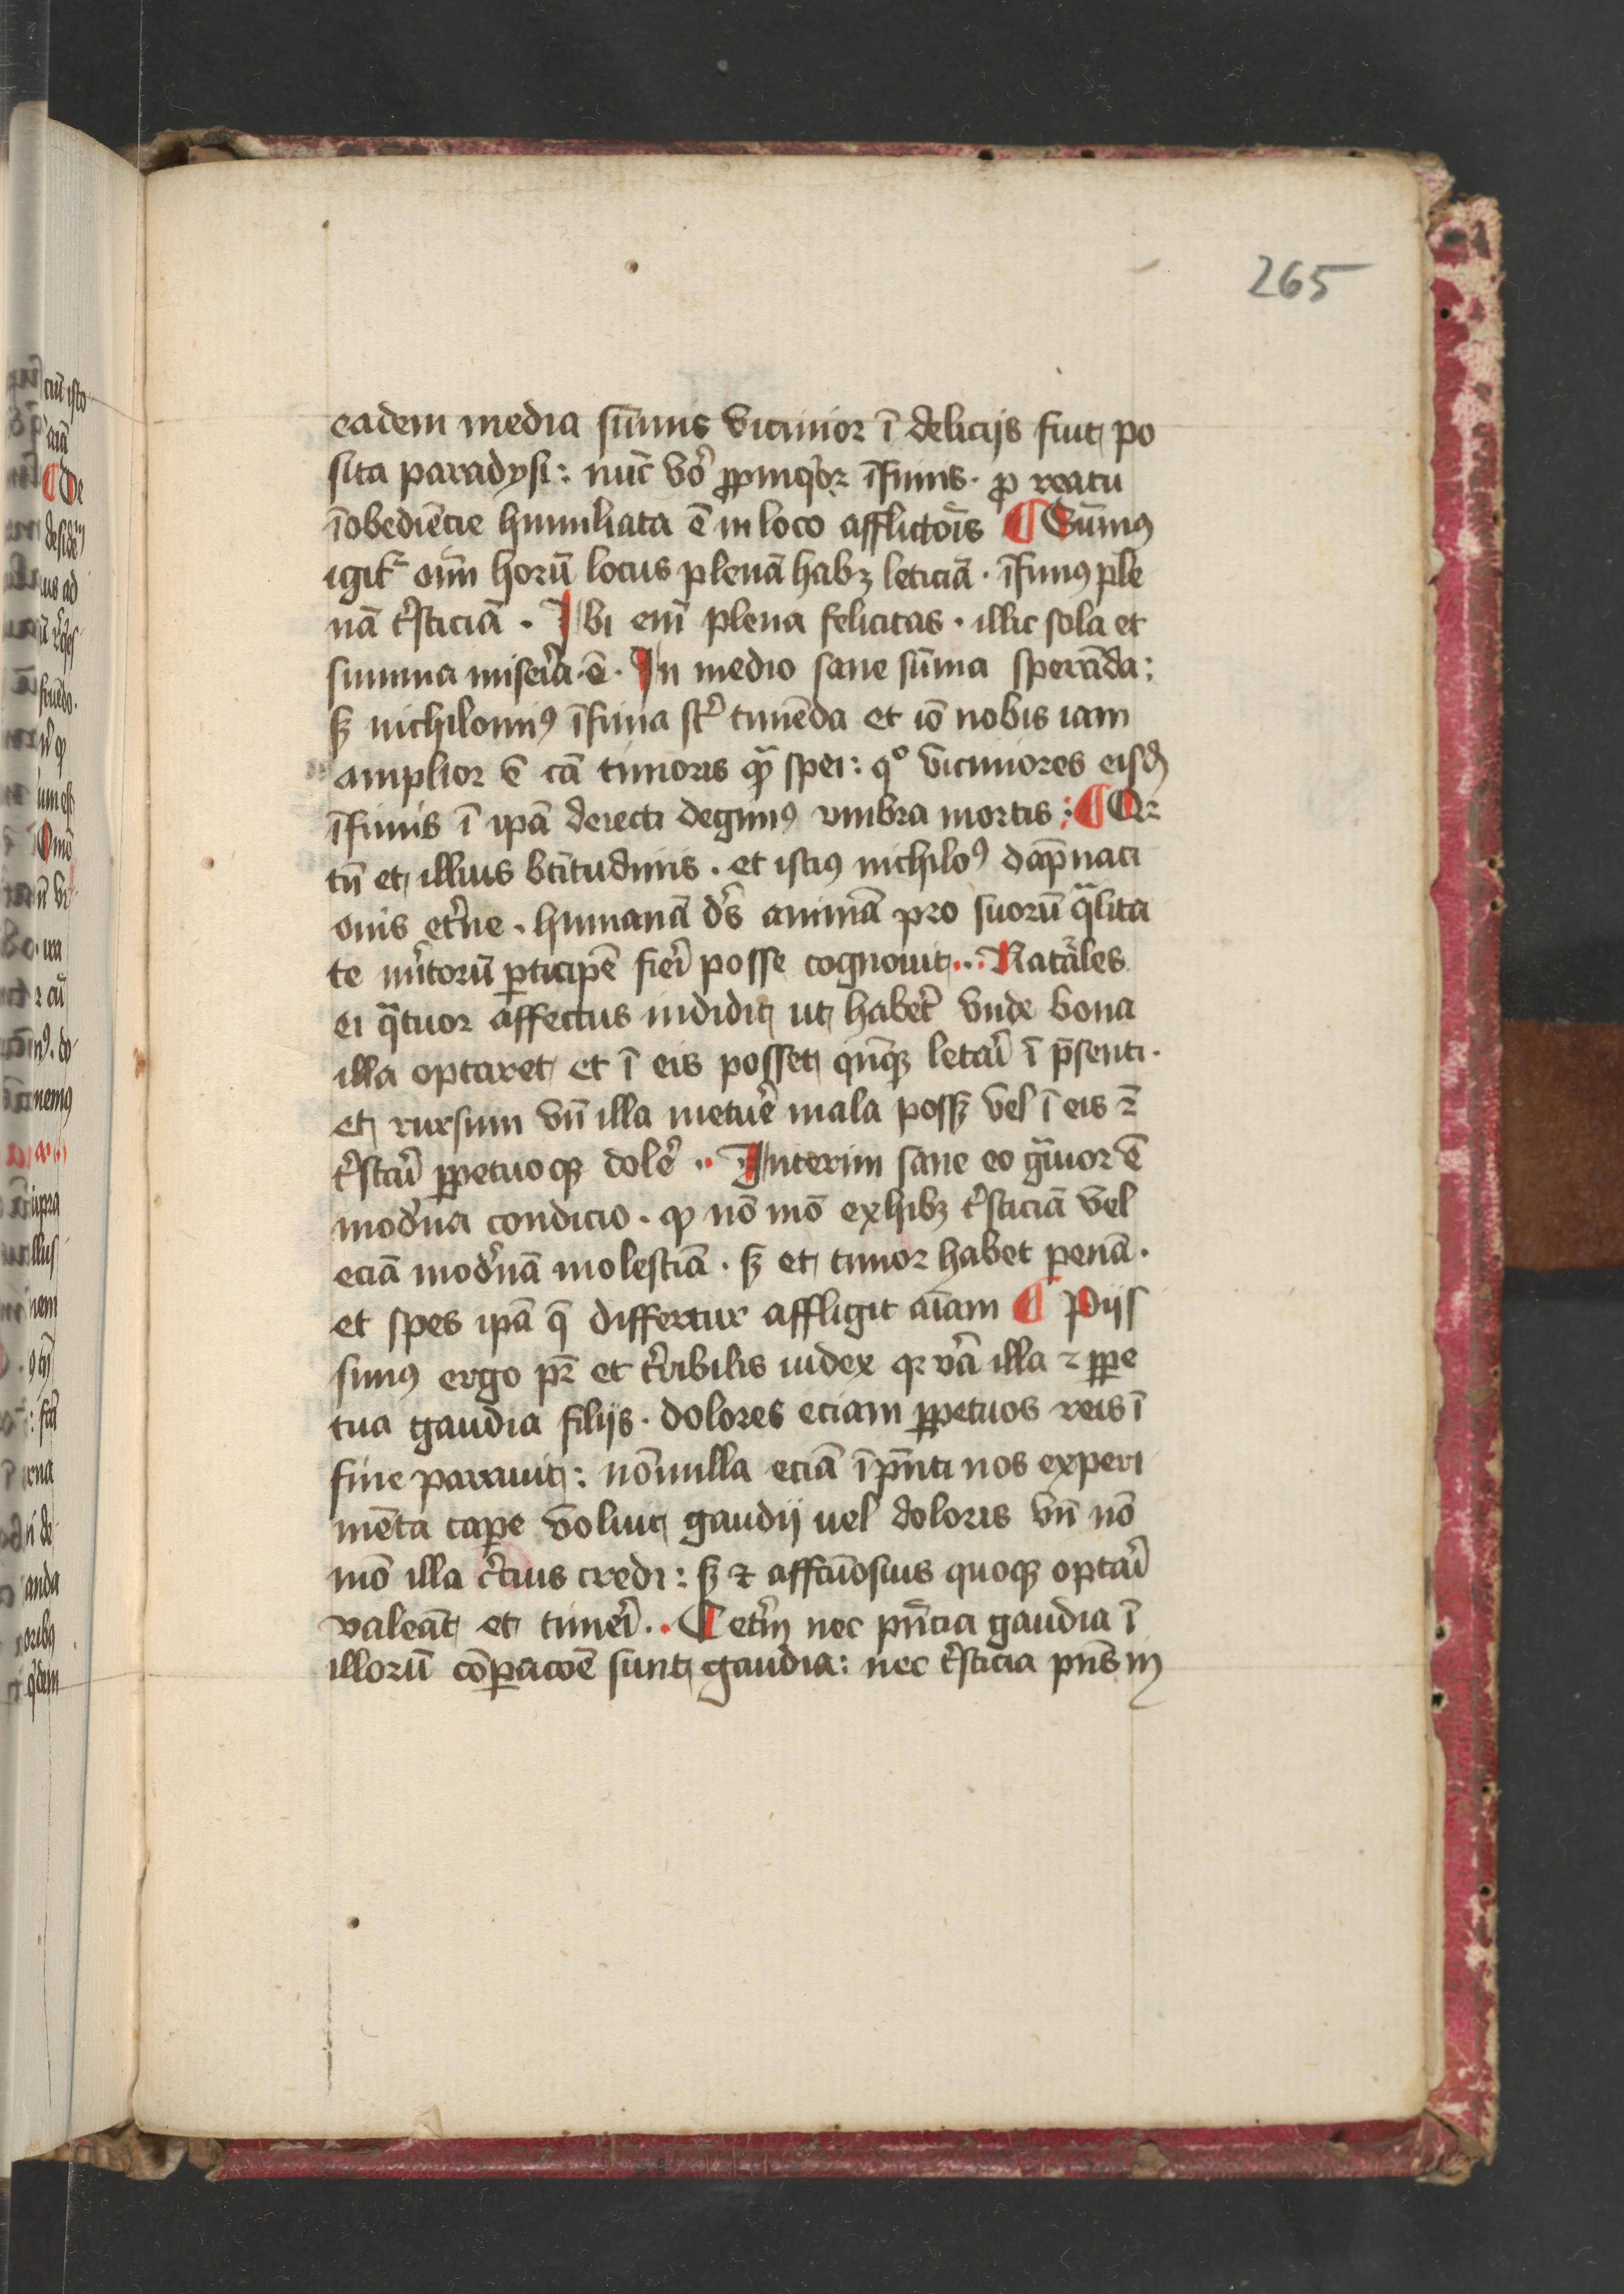 265
eadem media su᷑mis vicinior ī delicijs fuit po
sita paradysi : nūc vo᷑ ꝓpinq̇or īfimis · ꝓ reatu
īobediēcie humiliata ē in loco afflictōis ¶ Sūmꝰ
igit᷑ oīm horū locus plenā habꝫ leticiā · īfimꝰ ple
nā t᷑sticiā · Ibi enī plena felicitas · illic sola et
summa misei᷑a · ē · In medio sane sūma sperāda :
sꝫ nichilominꝰ īfima sꝉ᷑ timēda et iō nobis iam
amplior ē cā timoris qᷓ spei : qͦ viciniores eisd̄
īfimis ī ipā deiecti degimꝰ vmbra mortis : ¶ Qꝛ
tn̄ et illius btītudinis · et istiꝰ nichiloꝰ dāpnaci
onis et᷑ne · humanā ds̄ animā pro suorū qᷓlita
te mi᷑torū ꝑticipē fiei᷑ posse cognouit ·· Nat᷑ales
ei qᷓtuor affectus indidit ut habet᷑ vnde bona
illa optaret et ī eis posset qn̄qꝫ letai᷑ ī p̄senti ·
et rursum vn̄ illa metue᷑ mala possꝫ vel ī eis ⁊
t᷑stai᷑ ꝑpetuoqꝫ dole᷑ ·· Interim sane eo gᷓuior ē
mod᷑na condicio · ꝙ nō mō exhibꝫ t᷑sticiā vel
eciā mod᷑nā molestiā · sꝫ et timor habet penā ·
et spes ipā q̄ differtur affligit aīam ¶ Piis
simꝰ ergo pr̄ et t᷑ribilis iudex qꝛ va᷑ illa ⁊ ꝑpe
tua gaudia filijs · dolores eciam ꝑpetuos reis ī
fine parauit : nōnulla eciā ī pn̄ti nos experi
mēta cape᷑ voluit gaudij uel doloris vn̄ nō
mō illa c᷑cius credi : sꝫ ⁊ affcūosius quoqꝫ optai᷑
valeāt et timei᷑ ·· Cet᷑m nec pn̄cia gaudia ī
illorū cōꝑacōē sunt gaudia : nec t᷑sticia pn̄s in